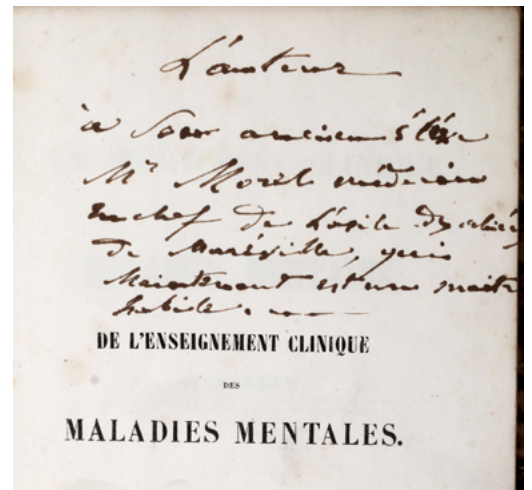 L'auteur
à son ancien élève
Mr Morel médecin
en chef de l'asile des aliénés
de Maréville, qui
Maintenant est un maître
habile.
DE L'ENSEIGNEMENT CLINIQUE
DES
MALADIES MENTALES.